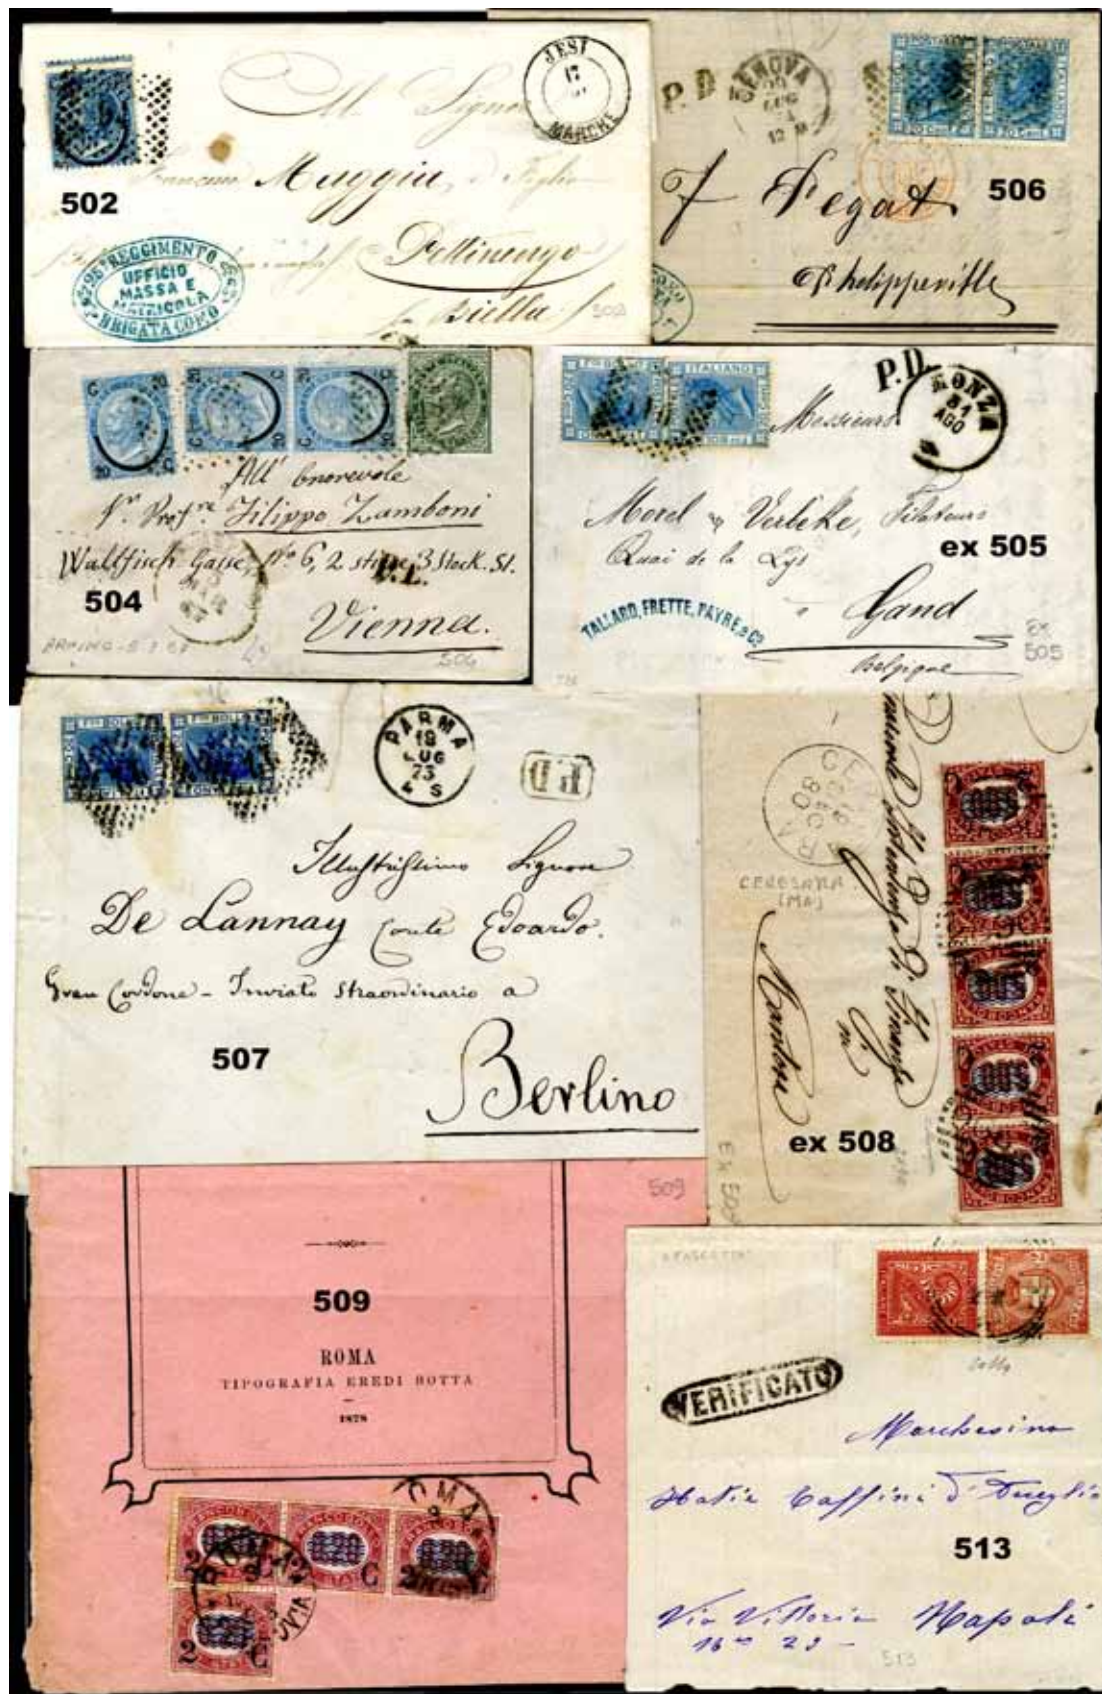 JESI
17
MARCHE
Signor
Muggia
502
Pettinengo
Biella
95° REGGIMENTO
UFFICIO
MASSA E
MATRICOLA
BRIGATA COMO
502
P.D
GENOVA
LUG
12 M
20 CENT
20 CENT
506
F Pegat
Philippeville
C 20
20 C
All' Onorevole
Sr. Profre. Filippo Zamboni
Wallfisch Gasse, No 6, 2 stiege, 3 Stock. St.
504
Vienna.
504
ITALIANO
P.D.
MONZA
31
AGO
Messieurs
Morel Verbeke, Filateurs
Quai de la Lys
ex 505
à Gand
TALLARD, FRETTE, PAYRE, & Cie
Belgique
ex
505
PARMA
18
LUG
73
4 S
P D
Illustrissimo Signore
De Lannay Conte Edoardo.
Gran Cordone - Inviato Straordinario a
507
Berlino
CERESARA
(MA)
Intendenza di Finanza
in
Mantova
ex 508
Ex 508
509
509
ROMA
TIPOGRAFIA EREDI BOTTA
1878
ROMA
2 C
VERIFICATO
Marchesina
Caffini d'
513
Via Vittoria Napoli
23
513